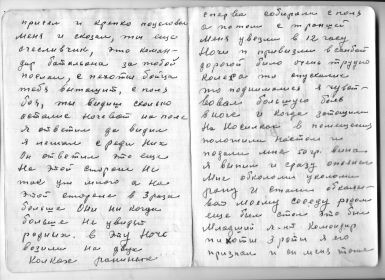 присел и крепко поцеловал
меня и сказал, ты еще
счесливчик, это коман-
дир батальона за тобой
послал, с пехоты бойца
тебя вытащит, с поля
боя, ты видиш сколько
осталис ночеват на поле
я ответил да видил
я лежал среди них
Он ответил это еще
На этой стороне не
так уж много а на
этой стороне в 3 раза
больше Они ни когда
больше не увидят
родних. в эту ноч
возили на двух
колках раниных
сперва собирали с поля
а потом с траншей
Меня увезли в 12 часу
Ночи и привезли в санбат
дорогой было очень трудно
Колеса то опускалис
то поднималис я чувст-
вовал большую боль
в ноге и когда затощили
На Носилках в помищения
положили на стол и
подали мне 100 гр. вина
я выпил и сразу опянел
Мне обкололи уколом
рану и стали обкалы-
вать моему соседу рядом
еще был стол это был
Младший л-нт Командир
пихоты 3 роты я его
признал и он меня тоже